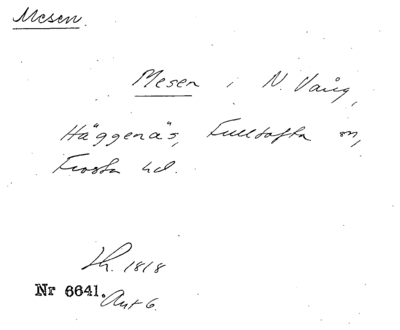 Mesen.
Mesen i N. Vång,
Häggenäs, Fulltofta sn,
Frosta hd.
Lh. 1818
Nr 6641. Akt 6.